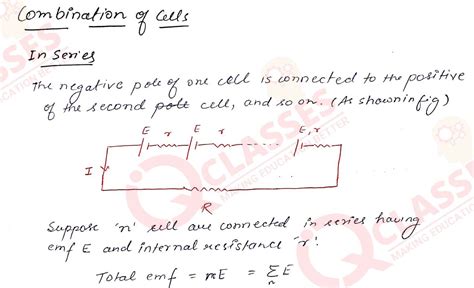 Combination of Cells
In Series
The negative pole of one cell is connected to the positive
of the second pole cell, and so on. (As shown in fig)
E r E r E, r
I
R
Suppose 'n' cell are connected in series having
emf E and internal resistance 'r'.
Total emf = nE = Σ E
n
CLASSES
MAKING EDUCATION BETTER